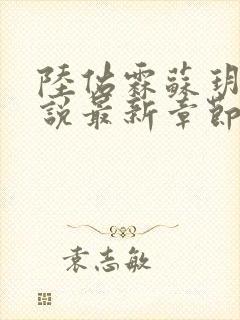 陸佔霖蘇玥
說最新章節
袁志敏